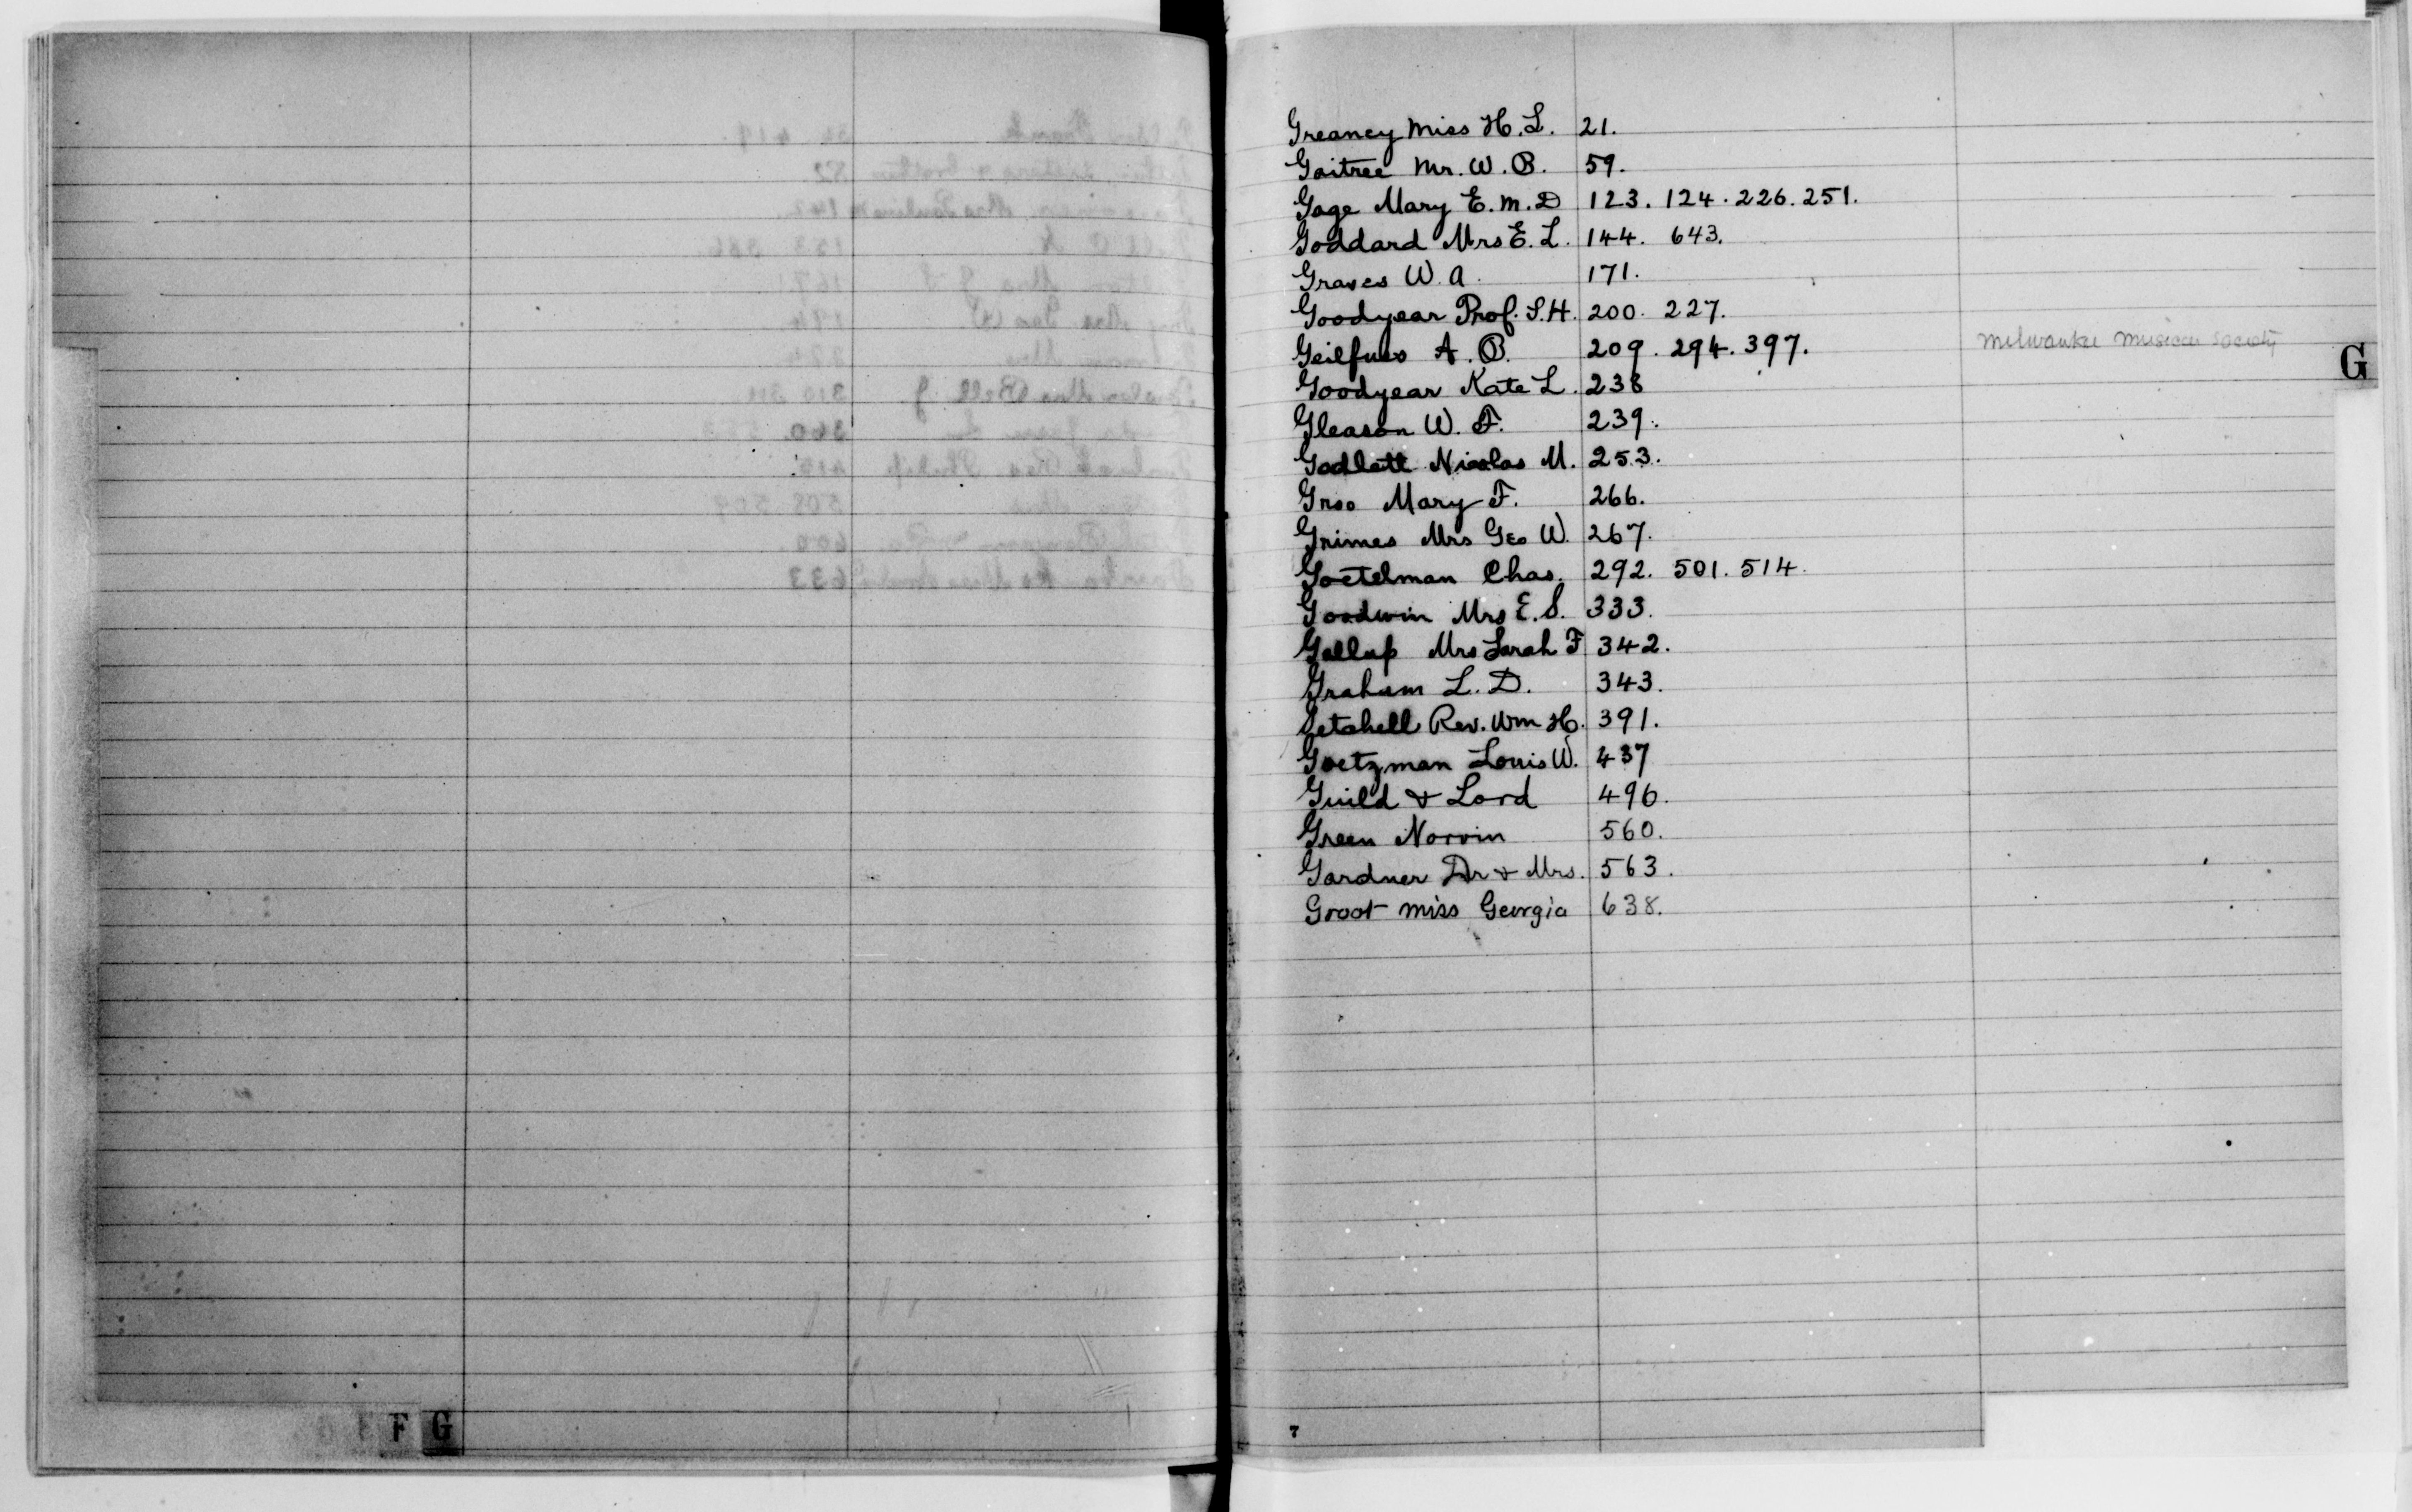 Greaney Miss H. L. 21.
Gaitree Mr. W. B. 59.
Gage Mary E. M. D 123. 124. 226. 251.
Goddard Mrs E. L. 144. 643.
Graves W. A. 171.
Goodyear Prof. S. H. 200. 227.
Geilfuss A. B. 209. 294. 397. Milwaukee Musical Society
Goodyear Kate L. 238
Gleason W. F. 239.
Nicolas M. 253.
Groo Mary F. 266.
Grimes Mrs Geo W. 267.
Goetelman Chas. 292. 501. 514.
Goodwin Mrs E. S. 333.
Gallup Mrs Sarah F 342.
Graham L. D. 343.
Getchell Rev. Wm H. 391.
Goetzman Louis W. 437
Guild & Lord 496.
Green Norvin 560.
Gardner Dr & Mrs. 563.
Groot Miss Georgia 638.
G
F G
7